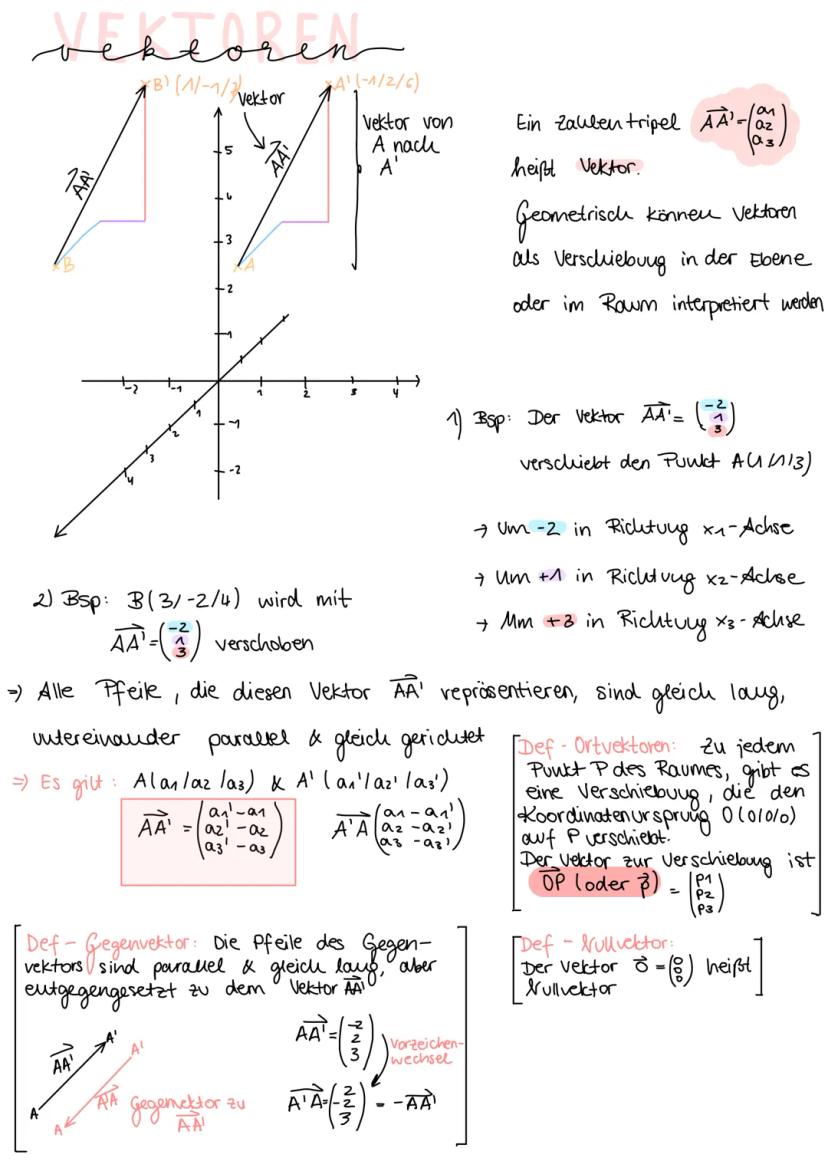 VEKTOREN
vektoren
B' (1/-1/7)
A' (-1/2/6)
Vektor
Vektor von
A nach
A'
AA'
AA'
B
A
5
4
3
2
1
-2
-1
1
2
3
4
1
2
3
4
-1
-2
Ein Zahlentripel AA' = (a1 a2 a3)
heißt Vektor.
Geometrisch können Vektoren
als Verschiebung in der Ebene
oder im Raum interpretiert werden
1) Bsp: Der Vektor AA' = (-2 1 3)
verschiebt den Punkt A(1/1/3)
→ Um -2 in Richtung x1-Achse
→ Um +1 in Richtung x2-Achse
→ Um +3 in Richtung x3-Achse
2) Bsp: B(3/-2/4) wird mit
AA' = (-2 1 3) verschoben
⇒ Alle Pfeile, die diesen Vektor AA' repräsentieren, sind gleich lang,
untereinander parallel & gleich gerichtet
⇒ Es gilt: A(a1/a2/a3) & A'(a1'/a2'/a3')
AA' = (a1'-a1 a2'-a2 a3'-a3) A'A (a1-a1' a2-a2' a3-a3')
Def - Ortvektoren: Zu jedem
Punkt P des Raumes, gibt es
eine Verschiebung, die den
Koordinatenursprung O(0/0/0)
auf P verschiebt.
Der Vektor zur Verschiebung ist
OP (oder p) = (p1 p2 p3)
Def - Gegenvektor: Die Pfeile des Gegen-
vektors sind parallel & gleich lang, aber
entgegengesetzt zu dem Vektor AA'
AA' = (-2 2 3)
Vorzeichen-
wechsel
A'A = (2 -2 3) = -AA'
A'
AA'
A
A'
A'A Gegenvektor zu
AA'
A
Def - Nullvektor:
Der Vektor o = (0 0 0) heißt
Nullvektor